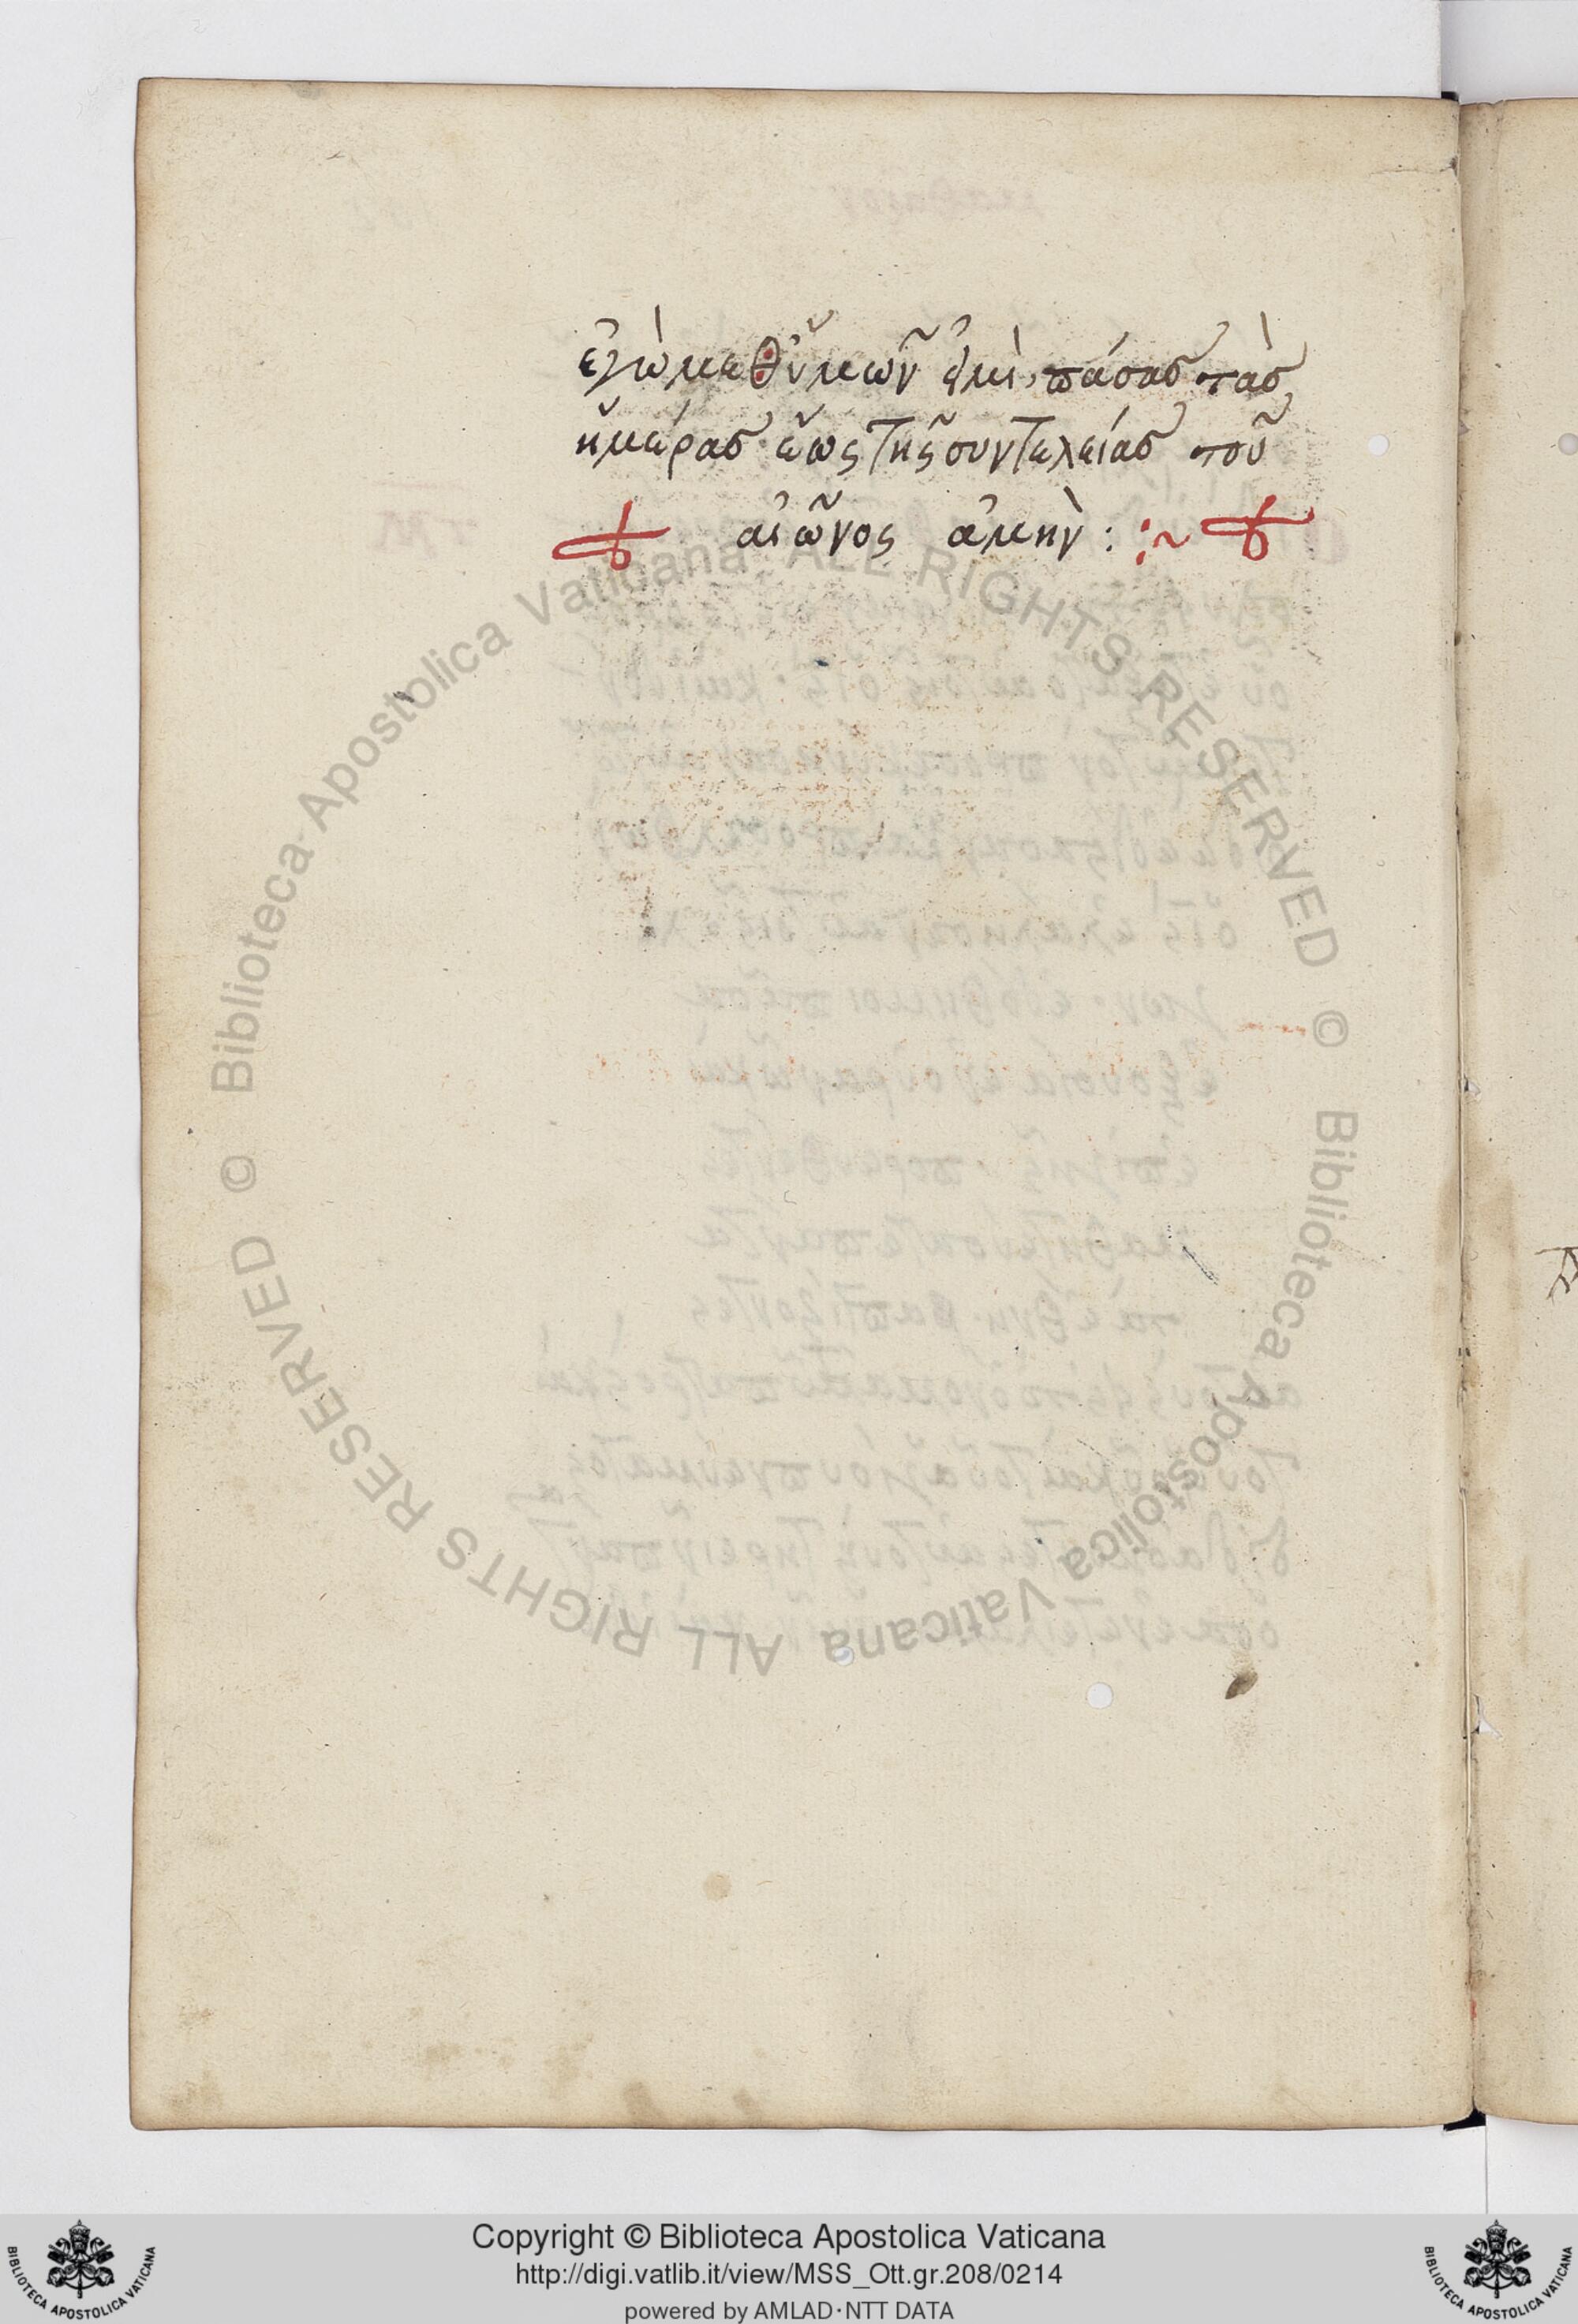 ἐγὼ μεθ ὑμῶν εἰμι, πάσας τὰς
ἡμέρας· ἕως τῆς συντελείας τοῦ
αἰῶνος ἀμήν : :~
© Biblioteca Apostolica Vaticana ALL RIGHTS RESERVED
© Biblioteca Apostolica Vaticana ALL RIGHTS RESERVED
Copyright © Biblioteca Apostolica Vaticana
http://digi.vatlib.it/view/MSS_Ott.gr.208/0214
powered by AMLAD·NTT DATA
BIBLIOTECA APOSTOLICA VATICANA
BIBLIOTECA APOSTOLICA VATICANA